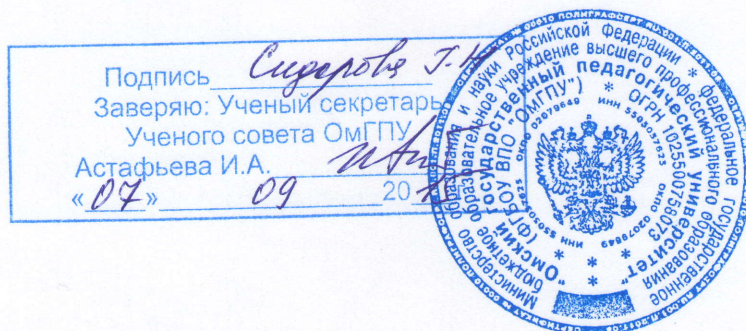 Подпись Сидорова Г.Н
Заверяю: Ученый секретарь
Ученого совета ОмГПУ
Астафьева И.А.
«07» 09 20
Министерство образования и науки Российской Федерации * Федеральное государственное
бюджетное образовательное учреждение высшего профессионального образования
"Омский государственный педагогический университет"
(ФГБОУ ВПО "ОмГПУ") * ОГРН 1025500758073
ОКПО 02079649 ИНН 5503037623